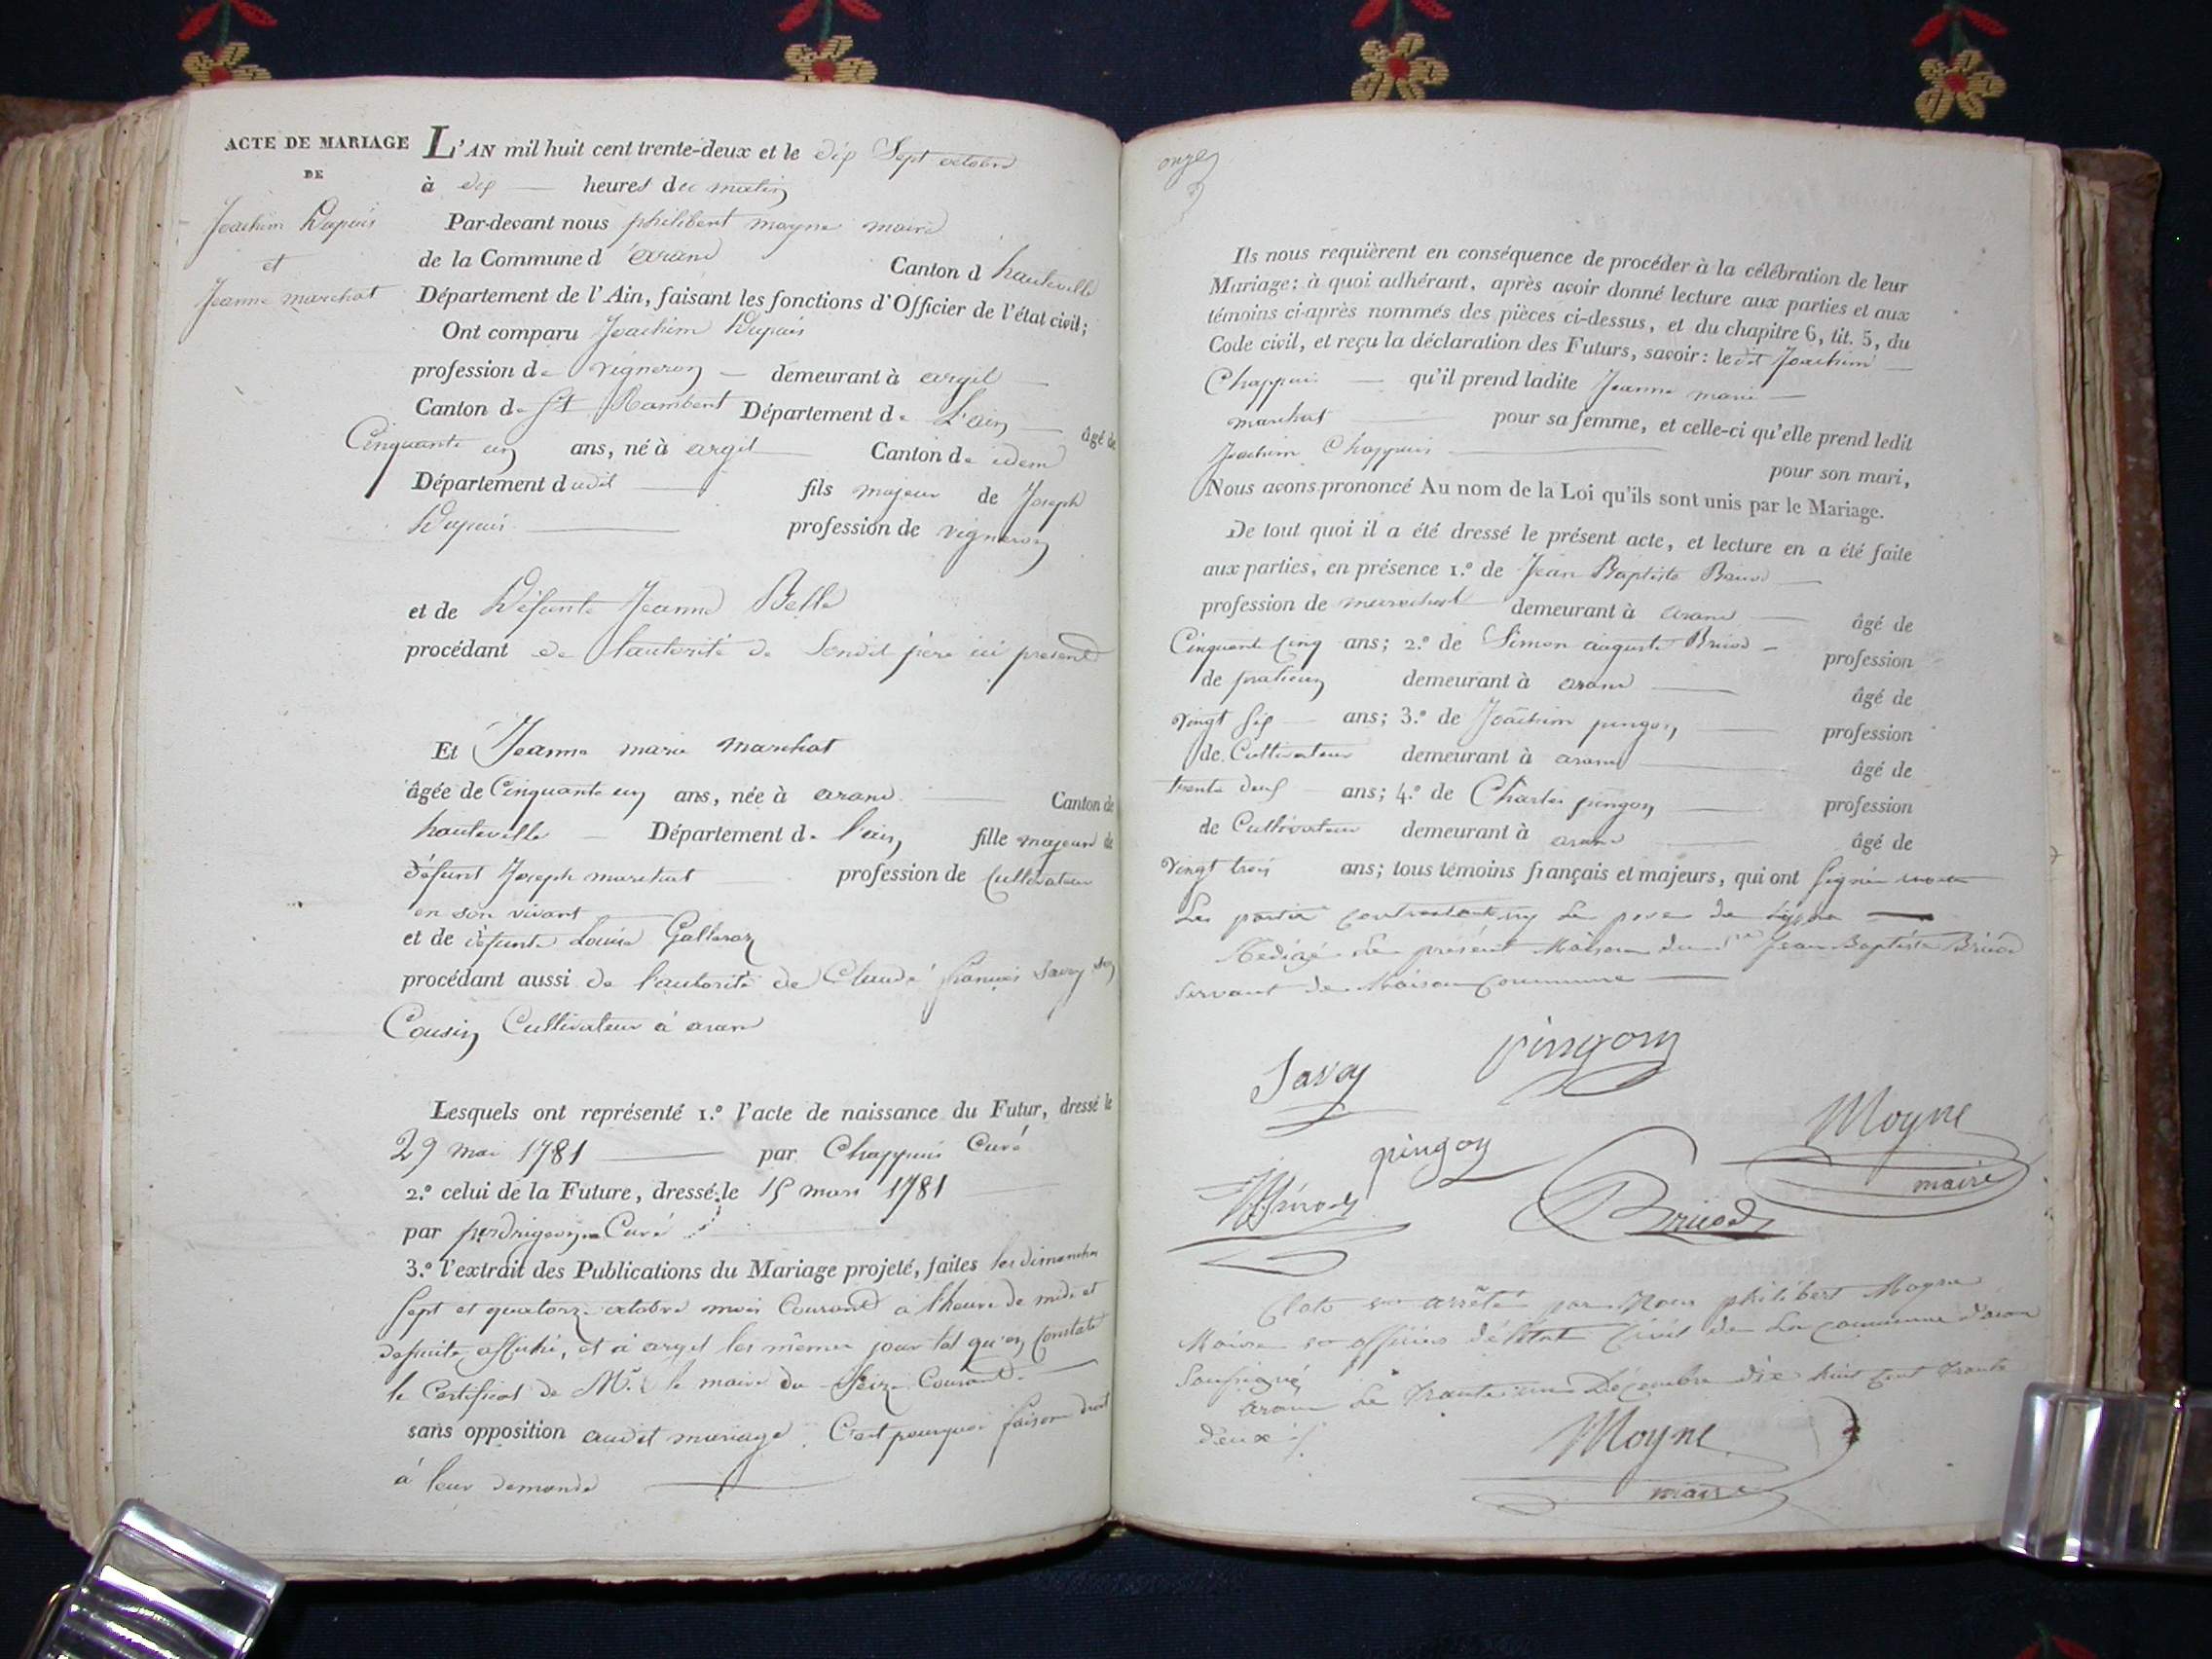 ACTE DE MARIAGE
DE
Joachim Dupuis
et
Jeanne marchat
L'AN mil huit cent trente-deux et le dix Sept octobre
à dix heures du matin
Par-devant nous philibert moyne maire
de la Commune d'arand Canton d hauteville
Département de l'Ain, faisant les fonctions d'Officier de l'état civil;
Ont comparu Joachim Dupuis
profession de vigneron demeurant à argil
Canton de St Rambert Département de L'ain âgé de
Cinquante un ans, né à argil Canton de idem
Département dudit fils majeur de Joseph
Dupuis profession de vigneron
et de Défunte Jeanne Belle
procédant de l'autorité de Sondit père ici présent
Et Jeanne marie marchat
âgée de Cinquante un ans, née à arand Canton de
hauteville Département de l'ain fille majeure de
défunt Joseph marchat profession de Cultivateur
en son vivant
et de défunte Louise
procédant aussi de l'autorité de Claude françois Savey son
Cousin Cultivateur à aran
Lesquels ont représenté 1.º l'acte de naissance du Futur, dressé le
29 mai 1781 par Chappuis Curé
2.º celui de la Future, dressé le 15 mars 1781
par perdrigeon Curé
3.º l'extrait des Publications du Mariage projeté, faites les dimanches
Sept et quatorze octobre mois Courant à l'heure de midi et
affiché, et à argil les mêmes jour tel qu'en Constate
le Certificat de Mr. le maire du Seize Courant
sans opposition audit mariage. C'est pourquoi faisant droit
à leur demande
onze
Ils nous requièrent en conséquence de procéder à la célébration de leur
Mariage; à quoi adhérant, après avoir donné lecture aux parties et aux
témoins ci-après nommés des pièces ci-dessus, et du chapitre 6, tit. 5, du
Code civil, et reçu la déclaration des Futurs, savoir: ledit Joachim
Chappuis qu'il prend ladite Jeanne marie
marchat pour sa femme, et celle-ci qu'elle prend ledit
Joachim Chappuis pour son mari,
Nous avons prononcé Au nom de la Loi qu'ils sont unis par le Mariage.
De tout quoi il a été dressé le présent acte, et lecture en a été faite
aux parties, en présence 1.º de Jean Baptiste Briod
profession de marechal demeurant à arand âgé de
Cinquante Cinq ans; 2.º de Simon auguste Briod profession
de praticien demeurant à arand âgé de
vingt six ans; 3.º de Joachim pingon profession
de Cultivateur demeurant à arand âgé de
trente deux ans; 4.º de Charles pingon profession
de Cultivateur demeurant à arand âgé de
vingt trois ans; tous témoins français et majeurs, qui ont Signé
Les partie contractante ny Le pere de Signé
Redigé Le présent Maison du Sre Jean Baptiste Briod
Servant de Maison Commune
Savey
pingon
pingon
Moyne
maire
Briod
Clos et arrêté par Nous philibert Moyne
Maire et officier de l'état Civil de La commune d'aran
Soussigné
aran Le trente un Décembre dix huit Cent trente
deux
Moyne
maire